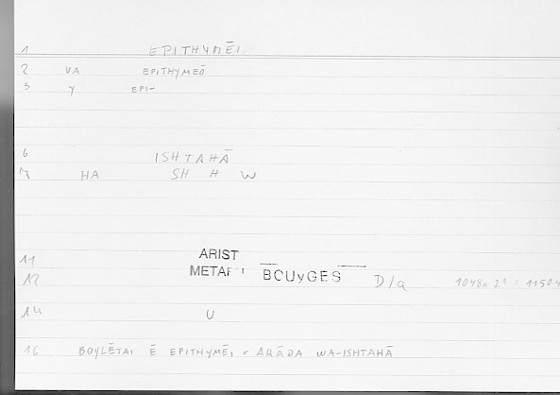 1 EPITHYMĒI
2 VA EPITHYMEŌ
3 Y EPI-
6 ISHTAHĀ
7 HA SH H W
11 ARIST
12 METAF BOUYGES D/a 1048a 21 : 1150
14 U
16 BOYLĒTAI Ē EPITHYMĒI = ARĀDA WA-ISHTAHĀ